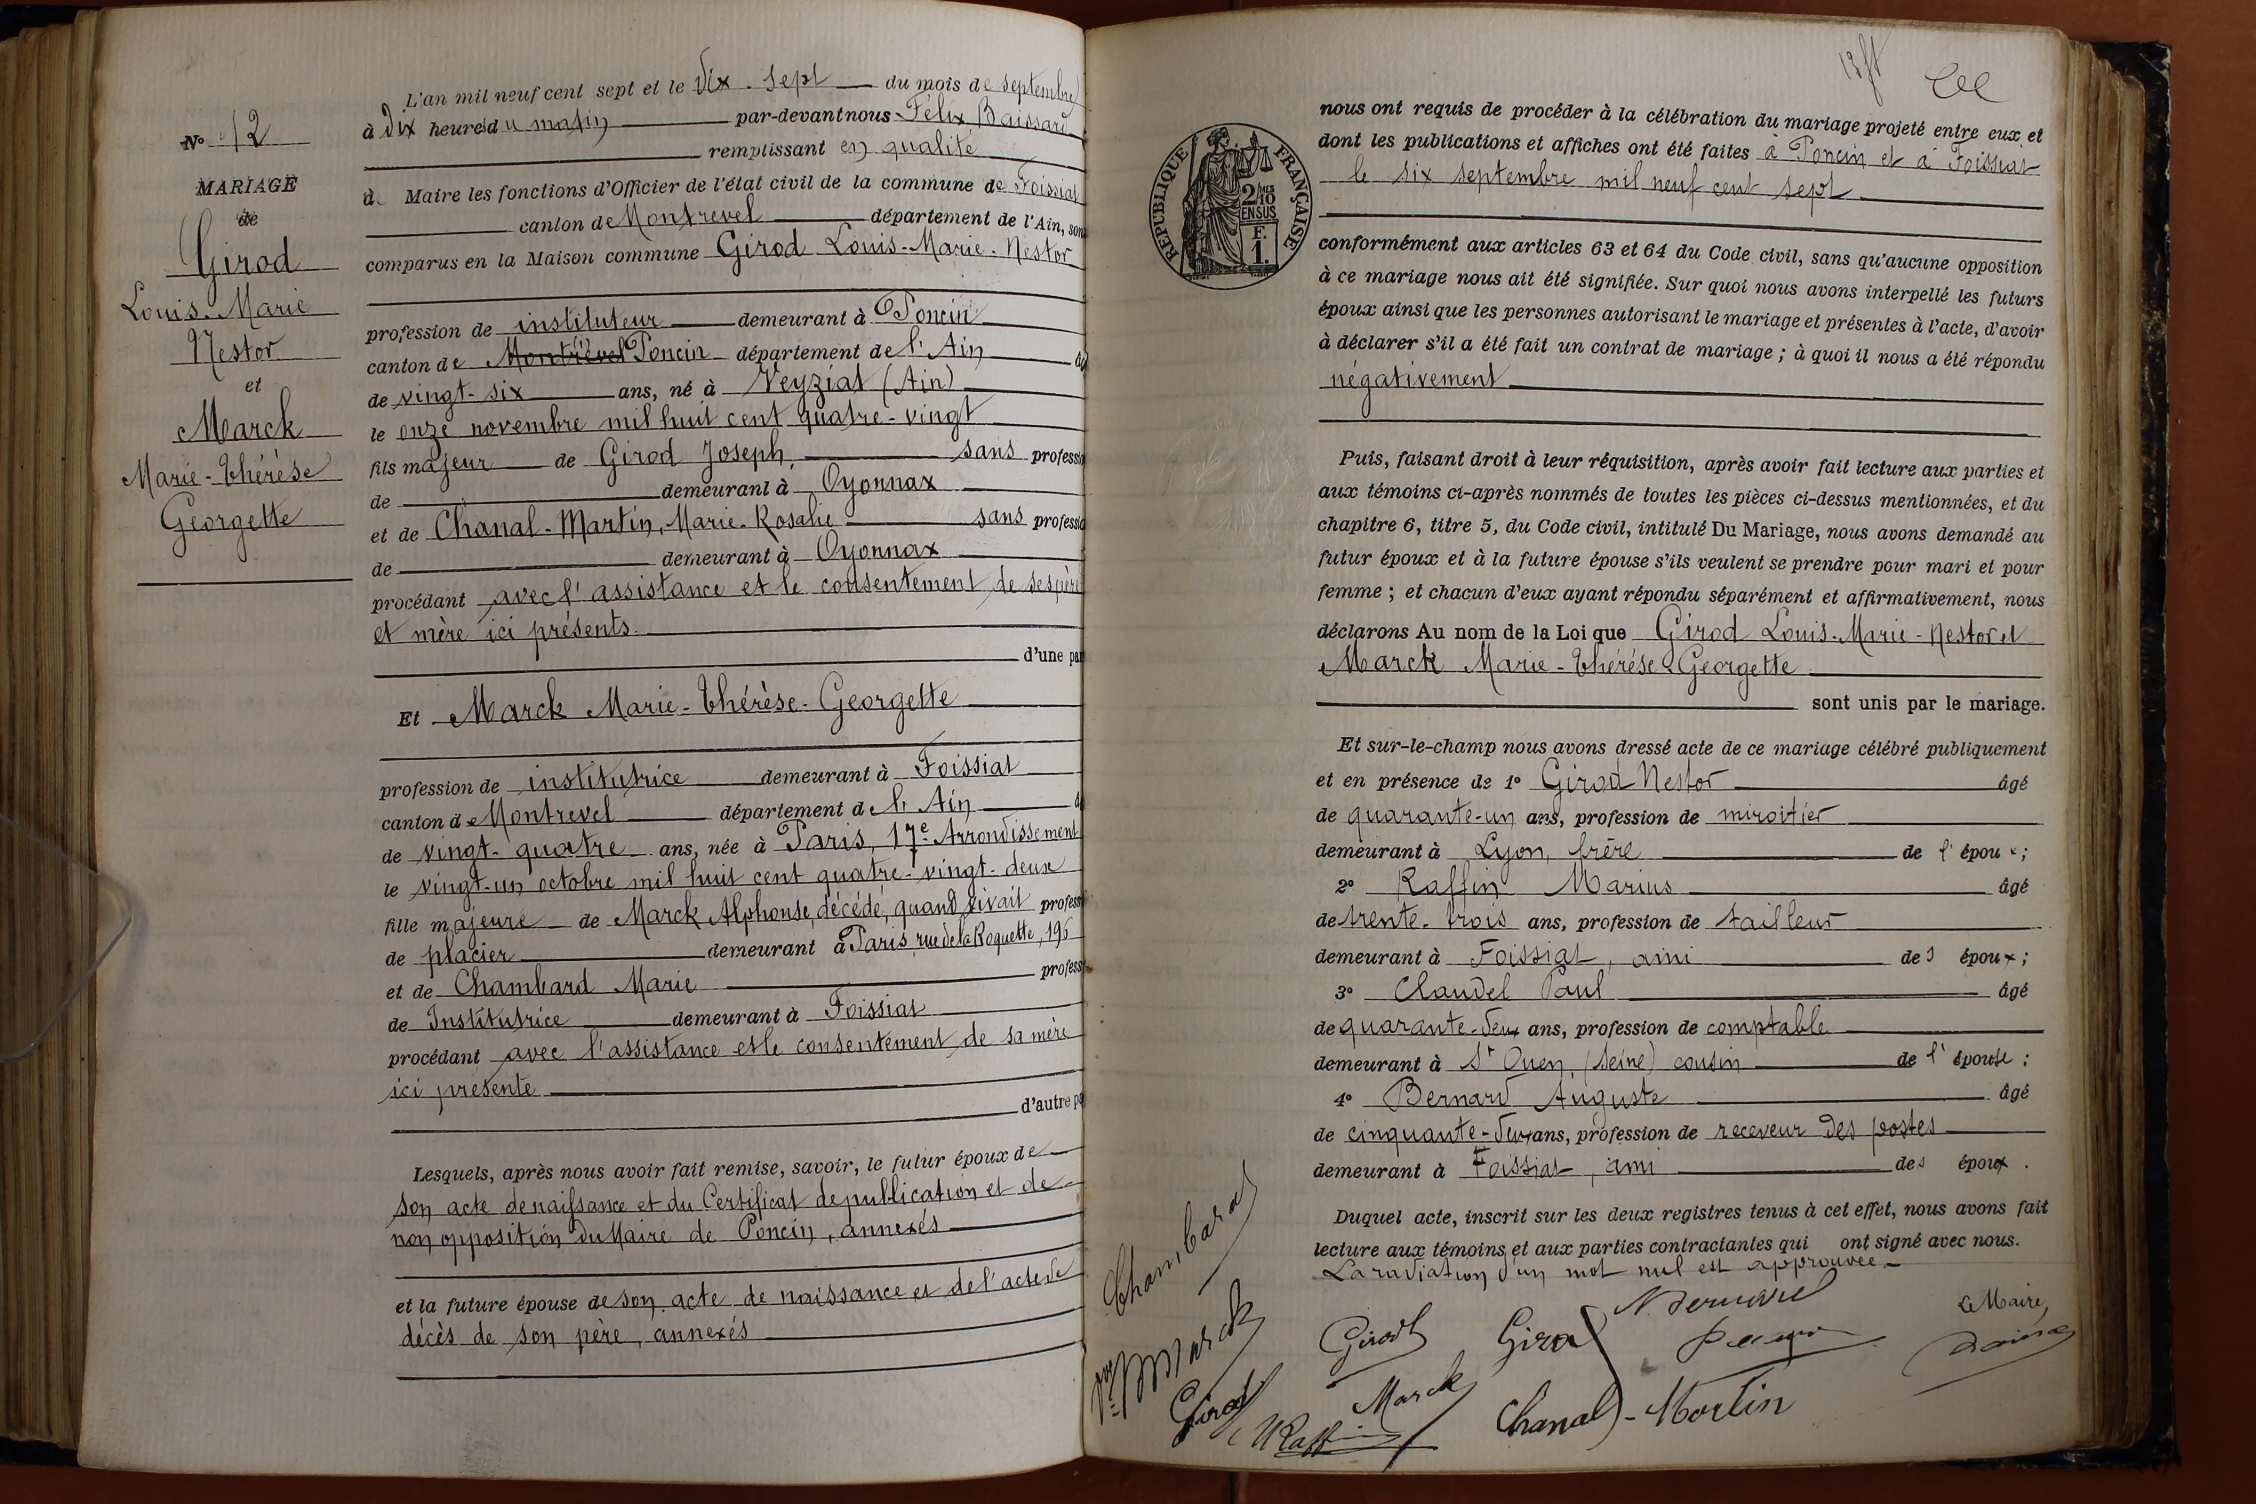 L'an mil neuf cent sept et le dix-sept du mois de septembre
à dix heures du matin par-devant nous Félix
remplissant en qualité
de Maire les fonctions d'Officier de l'état civil de la commune de Foissiat
canton de Montrevel département de l'Ain, sont
comparus en la Maison commune Girod Louis-Marie-Nestor
profession de instituteur demeurant à Poncin
canton de Montrevel Poncin département de l'Ain
de vingt-six ans, né à Veyziat (Ain)
le onze novembre mil huit cent quatre-vingt
fils majeur de Girod Joseph, sans profession
de demeurant à Oyonnax
et de Chanal-Martin, Marie-Rosalie sans profession
de demeurant à Oyonnax
procédant avec l'assistance et le consentement de ses père
et mère ici présents.
d'une part
Et Marck Marie-Thérèse-Georgette
profession de institutrice demeurant à Foissiat
canton de Montrevel département de l'Ain
de vingt-quatre ans, née à Paris, 17e Arrondissement
le vingt-un octobre mil huit cent quatre-vingt-deux
fille majeure de Marck Alphonse, décédé, quand vivait profession
de placier demeurant à Paris, rue de la Roquette, 196
et de Chambard Marie profession
de Institutrice demeurant à Foissiat
procédant avec l'assistance et le consentement de sa mère
ici présente
d'autre part
Lesquels, après nous avoir fait remise, savoir, le futur époux de
son acte de naissance et du Certificat de publication et de
non opposition du Maire de Poncin, annexés
et la future épouse de son acte de naissance et de l'acte de
décès de son père, annexés
No 12
MARIAGE
de
Girod
Louis-Marie
Nestor
et
Marck
Marie-Thérèse
Georgette
RÉPUBLIQUE FRANÇAISE
2/10 EN SUS
F. 1.
nous ont requis de procéder à la célébration du mariage projeté entre eux et
dont les publications et affiches ont été faites à Poncin et à Foissiat
le six septembre mil neuf cent sept
conformément aux articles 63 et 64 du Code civil, sans qu'aucune opposition
à ce mariage nous ait été signifiée. Sur quoi nous avons interpellé les futurs
époux ainsi que les personnes autorisant le mariage et présentes à l'acte, d'avoir
à déclarer s'il a été fait un contrat de mariage ; à quoi il nous a été répondu
négativement
Puis, faisant droit à leur réquisition, après avoir fait lecture aux parties et
aux témoins ci-après nommés de toutes les pièces ci-dessus mentionnées, et du
chapitre 6, titre 5, du Code civil, intitulé Du Mariage, nous avons demandé au
futur époux et à la future épouse s'ils veulent se prendre pour mari et pour
femme ; et chacun d'eux ayant répondu séparément et affirmativement, nous
déclarons Au nom de la Loi que Girod Louis-Marie-Nestor et
Marck Marie-Thérèse-Georgette
sont unis par le mariage.
Et sur-le-champ nous avons dressé acte de ce mariage célébré publiquement
et en présence de 1° Girod Nestor âgé
de quarante-un ans, profession de miroitier
demeurant à Lyon, frère de l'époux ;
2° Raffin Marius âgé
de trente-trois ans, profession de tailleur
demeurant à Foissiat, ami des époux ;
3° Claudel Paul âgé
de quarante-deux ans, profession de comptable
demeurant à St Ouen, (Seine) cousin de l'épouse ;
4° Bernard Auguste âgé
de cinquante-deux ans, profession de receveur des postes
demeurant à Foissiat, ami des époux.
Duquel acte, inscrit sur les deux registres tenus à cet effet, nous avons fait
lecture aux témoins et aux parties contractantes qui ont signé avec nous.
La radiation d'un mot nul est approuvée.
Chambard
Marck
Girod
Girod
Marck
Girod
Chanal-Martin
Le Maire,